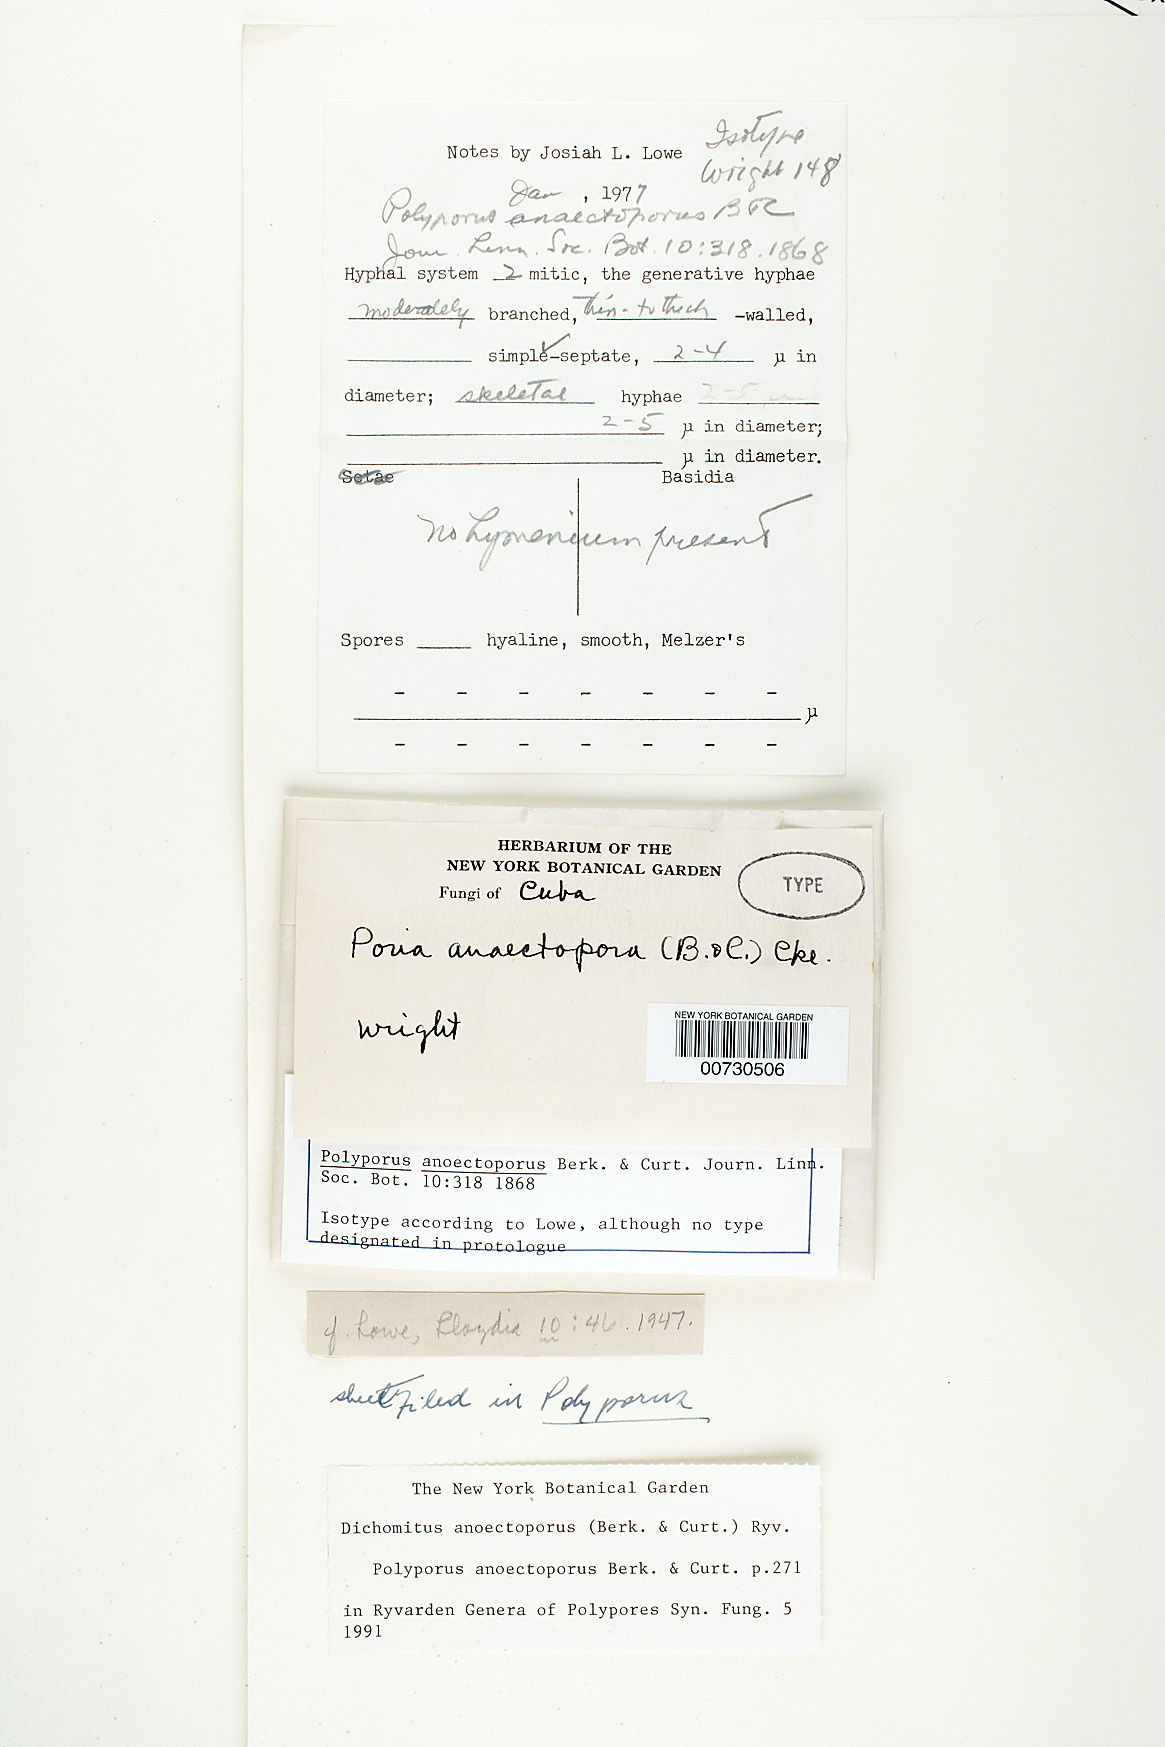 Isotype
Notes by Josiah L. Lowe
Wright 148
Jan , 1977
Polyporus anaectoporus B & C
Jour. Linn. Soc. Bot. 10:318.1868
Hyphal system 2 mitic, the generative hyphae
moderately branched, thin- to thick -walled,
simple-septate, 2-4 µ in
diameter; skeletal hyphae 2-5 µm
2-5 µ in diameter;
µ in diameter.
Setae Basidia
no hymenium present
Spores hyaline, smooth, Melzer's
- - - - - - -
µ
- - - - - - -
HERBARIUM OF THE
NEW YORK BOTANICAL GARDEN
TYPE
Fungi of Cuba
Poria anaectopora (B. & C.) Cke.
Wright
NEW YORK BOTANICAL GARDEN
00730506
Polyporus anoectoporus Berk. & Curt. Journ. Linn.
Soc. Bot. 10:318 1868
Isotype according to Lowe, although no type
designated in protologue
cf. Lowe, Lloydia 10:46.1947.
sheet filed in Polyporus
The New York Botanical Garden
Dichomitus anoectoporus (Berk. & Curt.) Ryv.
Polyporus anoectoporus Berk. & Curt. p.271
in Ryvarden Genera of Polypores Syn. Fung. 5
1991